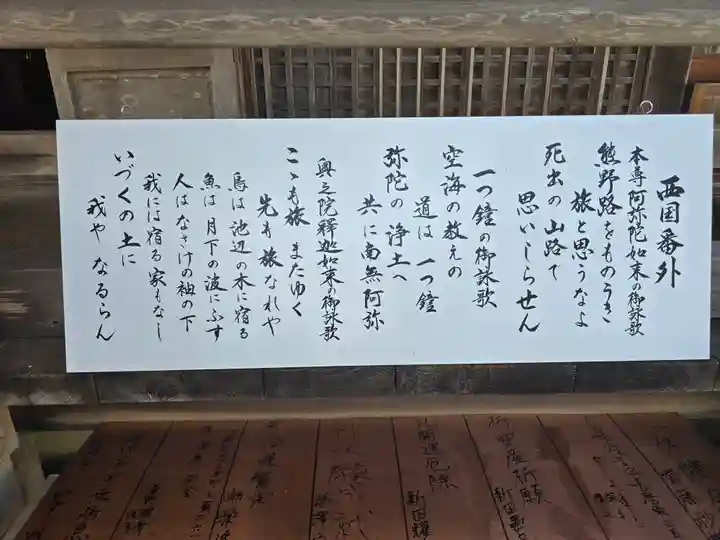 西国番外
本尊阿弥陀如来の御詠歌
熊野路をものうき
旅と思うなよ
死出の山路で
思いしらせん
一つ鐘の御詠歌
空海の教えの
道は一つ鐘
弥陀の浄土へ
共に南無阿弥
奥之院釋迦如来の御詠歌
こゝも旅またゆく
先も旅なれや
鳥は池辺の木に宿る
魚は月下の波にふす
人はなさけの袖の下
我には宿る家もなし
いづくの土に
我やなるらん
厄除
祈願
新田